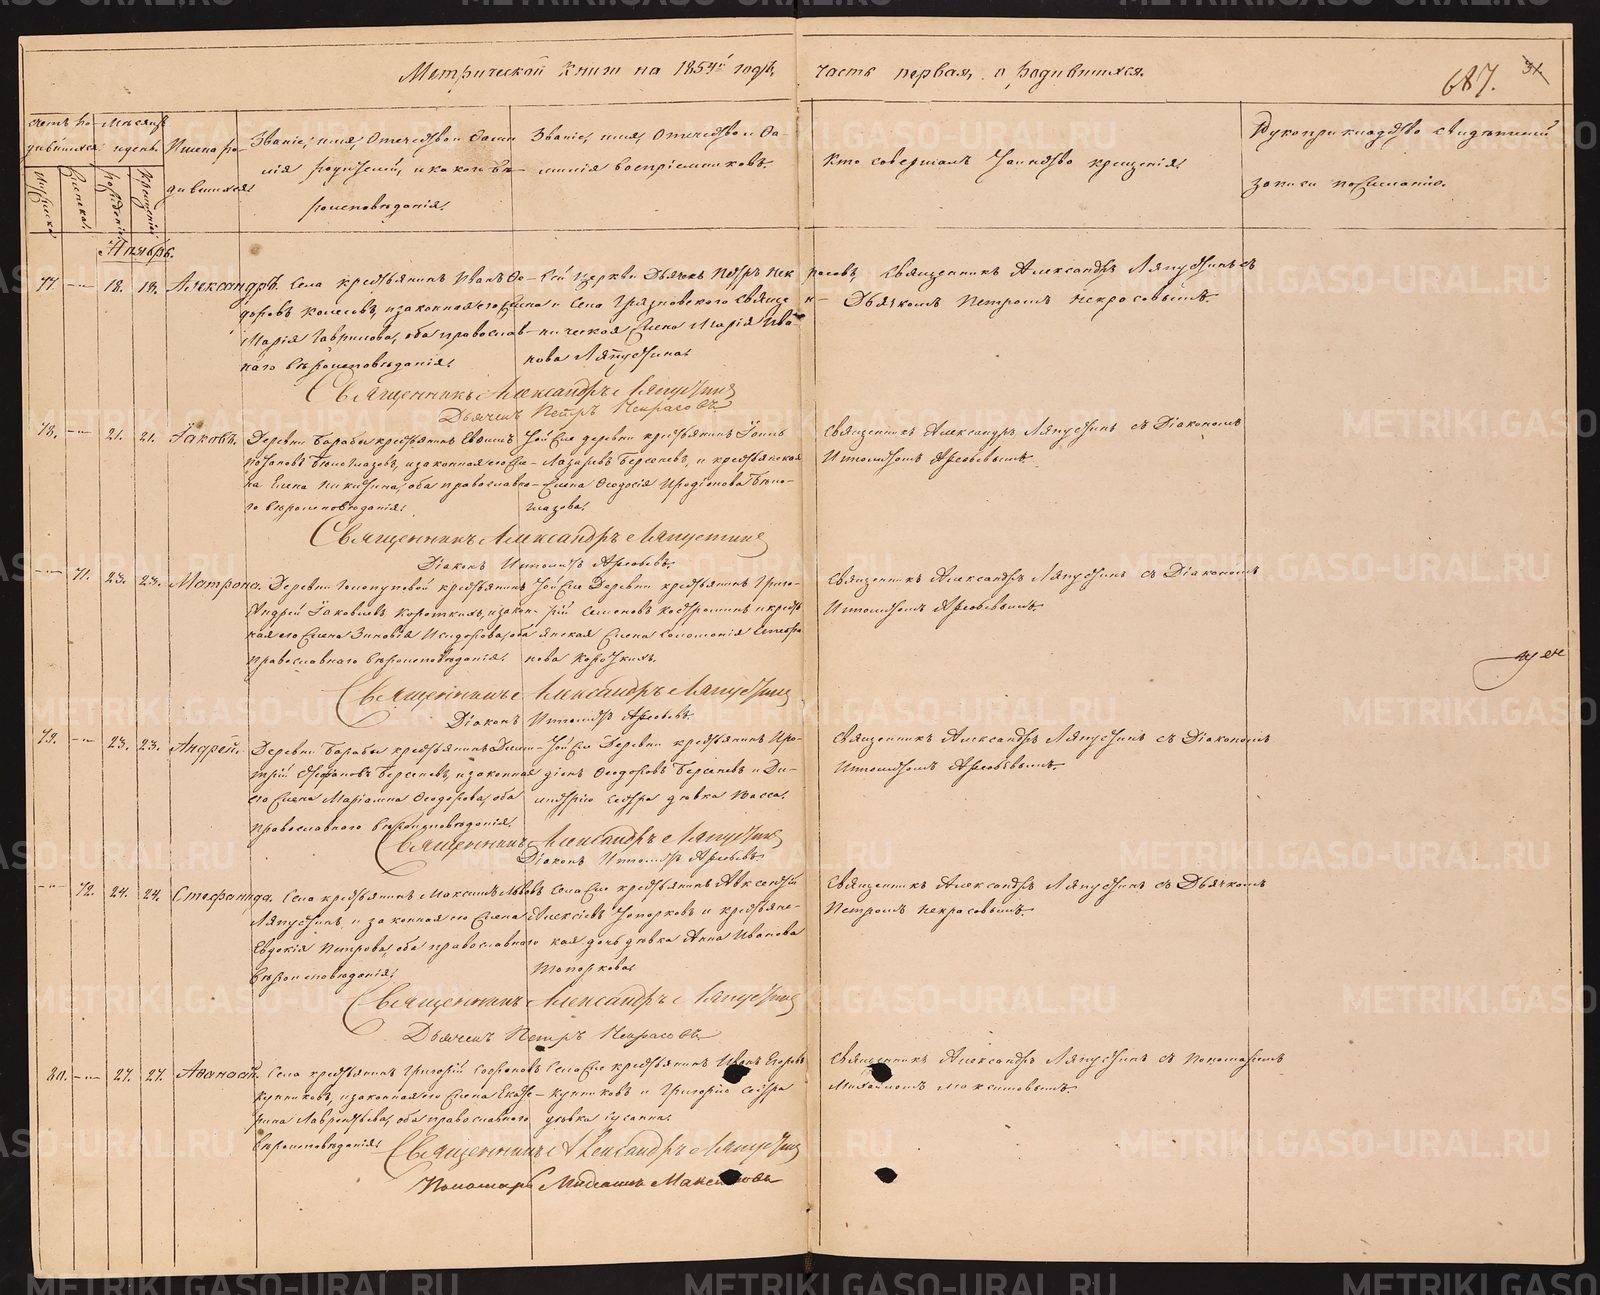 Метрической книги на 1854й годъ, часть первая, о родившихся.
687. 31
Счетъ ро-
дившихся.
Мѣсяцъ
и день.
Имена ро-
дившихся.
Званіе, имя, отчество и фами-
лія родителей, и какого вѣ-
роисповѣданія.
Званіе, имя, отчество и фа-
милія воспріемниковъ.
Кто совершалъ таинство крещенія.
Рукоприкладство свидѣтелей
записи по желанію.
Мужеска.
Женска.
Рожденія.
Крещенія.
Ноябрь.
77. — 18. 18. Александръ.
Села крестьянинъ Иванъ Ѳе-
доровъ Колесовъ, и законная его жена
Марія Гаврилова, оба православ-
наго вѣроисповѣданія.
Сей церкви Дьячекъ Петръ Некрасовъ,
и Села Грязновского священ-
ническая жена Марія Ива-
нова Ляпустина.
Священникъ Александръ Ляпустинъ съ
Дьячкомъ Петромъ Некрасовымъ.
Священникъ Александръ Ляпустинъ
Дьячекъ Петръ Некрасовъ
78. — 21. 21. Іаковъ.
Деревни Барабы крестьянинъ
Бѣлоглазовъ, и законная его же-
на Елена Никитина, оба православна-
го вѣроисповѣданія.
Той же деревни крестьянинъ
Лазаревъ Берсеневъ, и крестьянская
жена Ѳеодосія Иродіонова Бѣло-
глазова.
Священникъ Александръ Ляпустинъ съ Діакономъ
Ипполитомъ Арефьевымъ.
Священникъ Александръ Ляпустинъ
Діаконъ Ипполитъ Арефьевъ.
— 71. 23. 23. Матрона.
Деревни крестьянинъ
Андрей Іаковлевъ Короткихъ, и закон-
ная его жена Зиновія Исидорова, оба
православнаго вѣроисповѣданія.
Той же Деревни крестьянинъ Григо-
рій Семеновъ Костроминъ и крестья-
янская жена Соломонія
Короткихъ.
Священникъ Александръ Ляпустинъ съ Діакономъ
Ипполитомъ Арефьевымъ.
Священникъ Александръ Ляпустинъ
Діаконъ Ипполитъ Арефьевъ.
79. — 23. 23. Андрей.
Деревни Барабы крестьянинъ Дими-
трій Стефановъ Берсеневъ, и законная
его жена Маріамна Ѳеодорова, оба
православнаго вѣроисповѣданія.
Той же Деревни крестьянинъ Иро-
діонъ Ѳеодоровъ Берсеневъ и Ди-
митрію сестра дѣвка Васса.
Священникъ Александръ Ляпустинъ съ Діакономъ
Ипполитомъ Арефьевымъ.
Священникъ Александръ Ляпустинъ
Діаконъ Ипполитъ Арефьевъ.
— 72. 24. 24. Стефанида.
Села крестьянинъ Максимъ Львовъ
Ляпустинъ, и законная его жена
Евдокія Петрова, оба православнаго
вѣроисповѣданія.
Села же крестьянинъ Авксентій
Алексѣевъ Топорковъ и крестьянс-
кая дочь дѣвка Анна Иванова
Топоркова.
Священникъ Александръ Ляпустинъ съ Дьячкомъ
Петромъ Некрасовымъ.
Священникъ Александръ Ляпустинъ
Дьячекъ Петръ Некрасовъ
80. — 27. 27. Аѳанасій.
Села крестьянинъ Григорій Софоновъ
Куптиковъ, и законная его жена Екате-
рина Лаврентьева, оба православнаго
вѣроисповѣданія.
Села же крестьянинъ Иванъ Егоровъ
Куптиковъ и Григорію сестра
дѣвка Сусанна.
Священникъ Александръ Ляпустинъ съ Пономаремъ
Михаиломъ Максимовымъ.
Священникъ Александръ Ляпустинъ
Пономарь Михаилъ Максимовъ
METRIKI.GASO-URAL.RU